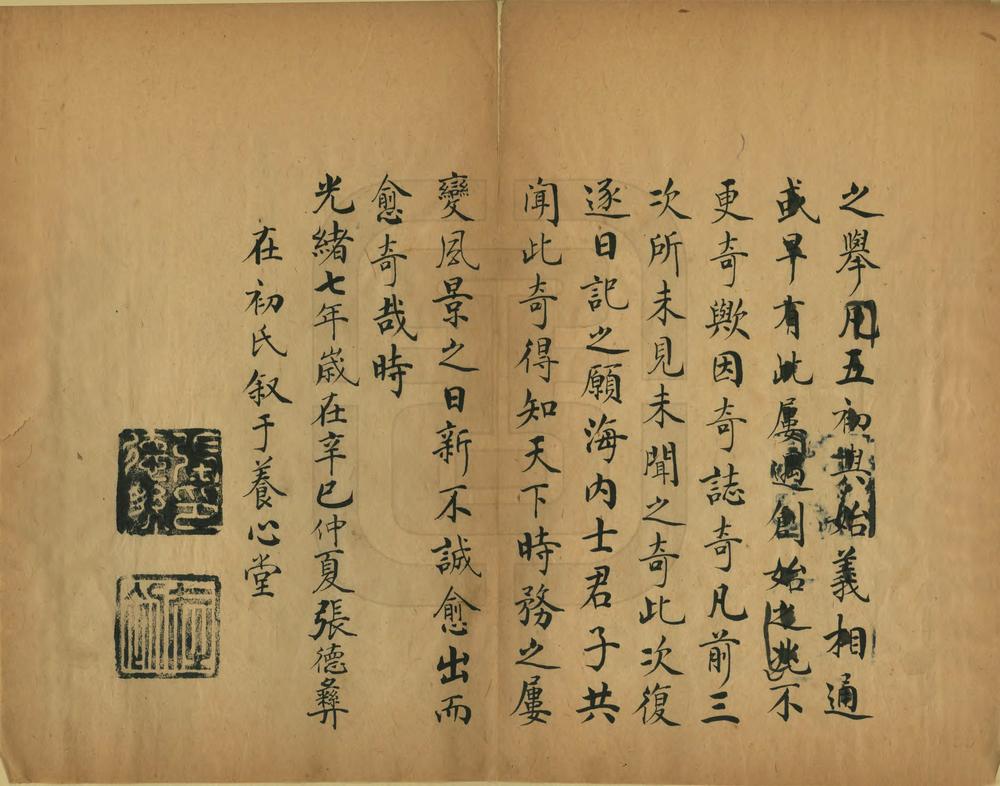 之舉用五初與始義相通
或早有此屢遇創始之兆不
更奇歟因奇誌奇凡前三
次所未見未聞之奇此次復
逐日記之願海內士君子共
闻此奇得知天下時務之屢
變風景之日新不誠愈出而
愈奇哉時
光緒七年歲在辛巳仲夏張德彝
在初氏叙于養心堂
張德彝印
在初